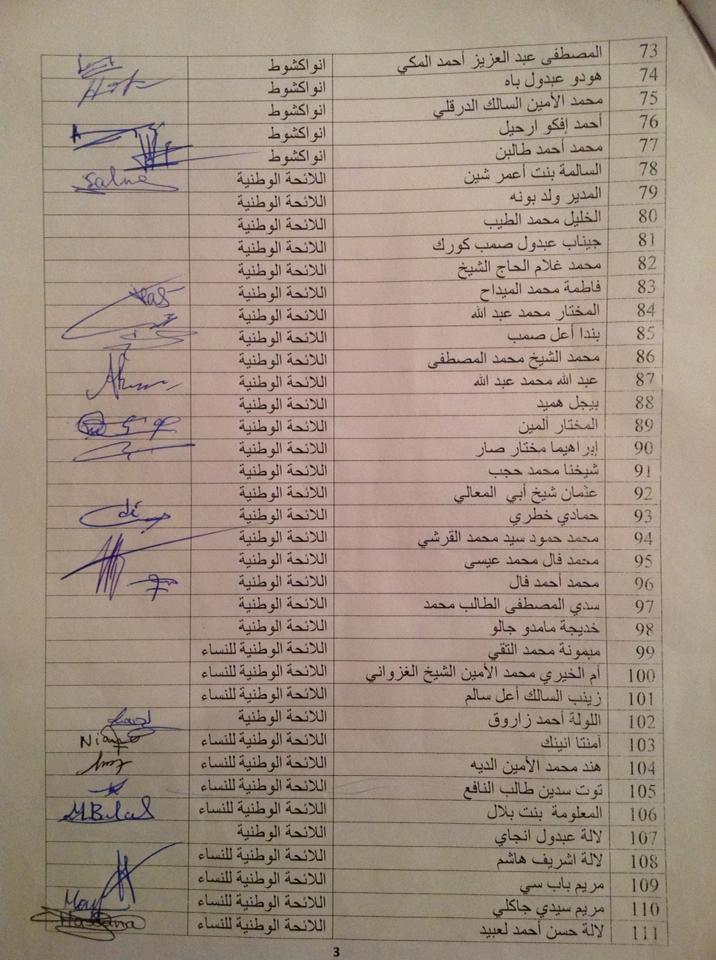 73 المصطفى عبد العزيز أحمد المكي انواكشوط
74 هودو عبدول باه انواكشوط
75 محمد الأمين السالك الدرقلي انواكشوط
76 أحمد إفكو ارحيل انواكشوط
77 محمد أحمد طالبن انواكشوط
78 السالمة بنت أعمر شين اللائحة الوطنية Salma
79 المدير ولد بونه اللائحة الوطنية
80 الخليل محمد الطيب اللائحة الوطنية
81 جيناب عبدول صمب كورك اللائحة الوطنية
82 محمد غلام الحاج الشيخ اللائحة الوطنية
83 فاطمة محمد الميداح اللائحة الوطنية
84 المختار محمد عبد الله اللائحة الوطنية
85 بندا أعل صمب اللائحة الوطنية
86 محمد الشيخ محمد المصطفى اللائحة الوطنية
87 عبد الله محمد عبد الله اللائحة الوطنية
88 بيجل هميد اللائحة الوطنية
89 المختار ألمين اللائحة الوطنية
90 إبراهيما مختار صار اللائحة الوطنية
91 شيخنا محمد حجب اللائحة الوطنية
92 عثمان شيخ أبي المعالي اللائحة الوطنية
93 حمادي خطري اللائحة الوطنية
94 محمد حمود سيد محمد القرشي اللائحة الوطنية
95 محمد فال محمد عيسى اللائحة الوطنية
96 محمد أحمد فال اللائحة الوطنية
97 سدي المصطفى الطالب محمد اللائحة الوطنية
98 خديجة مامدو جالو اللائحة الوطنية
99 ميمونة محمد التقي اللائحة الوطنية للنساء
100 أم الخيري محمد الأمين الشيخ الغزواني اللائحة الوطنية للنساء
101 زينب السالك أعل سالم اللائحة الوطنية للنساء
102 اللولة أحمد زاروق اللائحة الوطنية
103 آمنتا انينك اللائحة الوطنية للنساء
104 هند محمد الأمين الديه اللائحة الوطنية للنساء
105 توت سدين طالب النافع اللائحة الوطنية للنساء
106 المعلومة بنت بلال اللائحة الوطنية للنساء M Bilal
107 لالة عبدول انجاي اللائحة الوطنية
108 لالة اشريف هاشم اللائحة الوطنية للنساء
109 مريم باب سي اللائحة الوطنية للنساء
110 مريم سيدي جاكلي اللائحة الوطنية للنساء
111 لالة حسن أحمد لعبيد اللائحة الوطنية للنساء Hassana
3